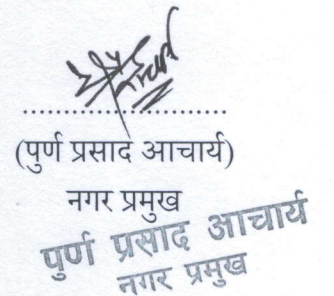 (पुर्ण प्रसाद आचार्य)
नगर प्रमुख
पुर्ण प्रसाद आचार्य
नगर प्रमुख